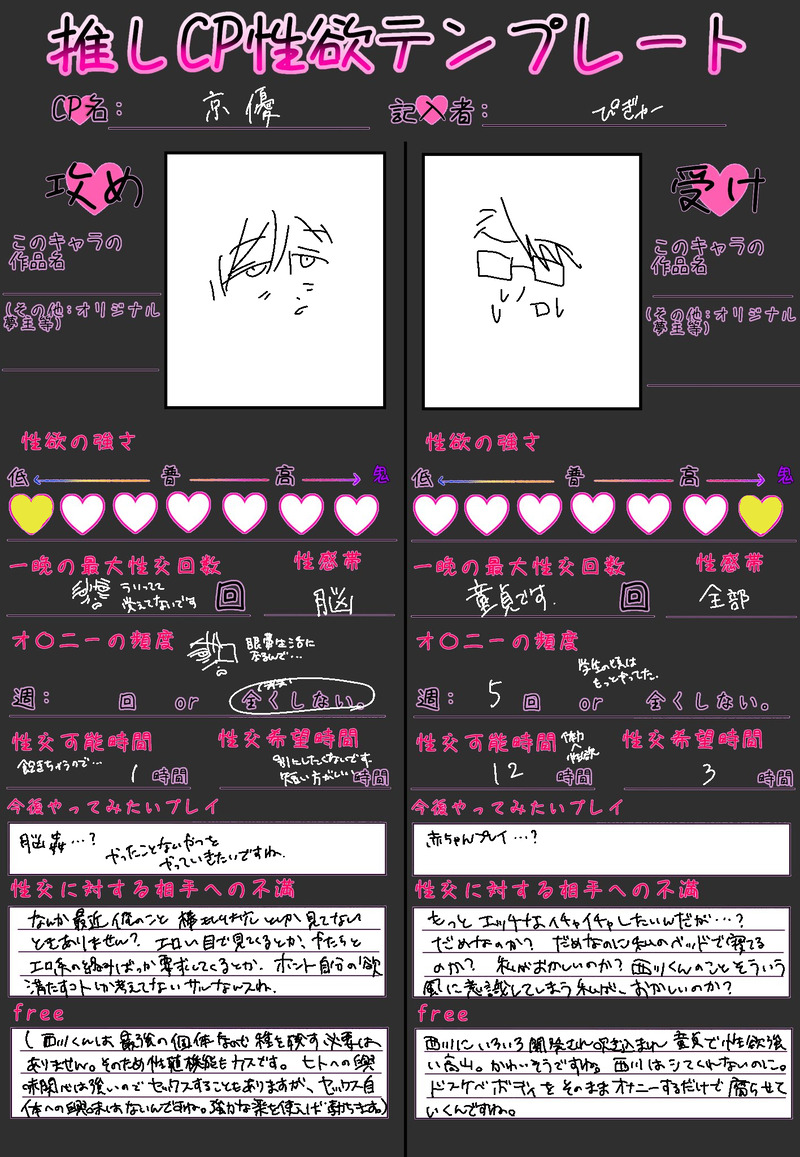 推しCP性欲テンプレート
CP名：京優
記入者：ぴぎゃー
攻め
このキャラの
作品名
(その他：オリジナル
夢主等)
性欲の強さ
低 普 高 鬼
一晩の最大性交回数
ういってて
覚えてないです
回
性感帯
脳
オ〇ニーの頻度
眼鏡生活に
なるんで…
週： 回 or 全くしない。
性交可能時間
飽きちゃうので…
1 時間
性交希望時間
別にしたくないです
短い方がいい
時間
今後やってみたいプレイ
脳姦…?
やったことないやつを
やっていきたいですね。
性交に対する相手への不満
なんか最近俺のこと
とか見てない
ときありません? エロい目で見てくるとか、
エロ系の絡みばっか要求してくるとか。ホント自分の欲
満たすコトしか考えてないサルなんスね。
free
(西川くんは最強の個体なので種を残す必要は
ありません。そのため性殖機能もカスです。ヒトへの興
味関心は強いのでセックスすることもありますが、セックス自
体への興味はないんですね。強力な薬を使えば勃ちます)
受け
このキャラの
作品名
(その他：オリジナル
夢主等)
性欲の強さ
低 普 高 鬼
一晩の最大性交回数
童貞です。
回
性感帯
全部
オ〇ニーの頻度
学生の頃は
もっとやってた。
週： 5 回 or 全くしない。
性交可能時間
体力
性欲
12 時間
性交希望時間
3 時間
今後やってみたいプレイ
赤ちゃんプレイ…?
性交に対する相手への不満
もっとエッチなイチャイチャしたいんだが…?
だめなのか? だめなのに私のベッドで寝てる
のか? 私がおかしいのか? 西川くんのことそういう
風に意識してしまう私が、おかしいのか?
free
西川にいろいろ開発され吹き込まれ童貞で性欲強
い高山。かわいそうですわね。西川はシてくれないのに。
ドスケベボディをそのままオナニーするだけで腐らせて
いくんですね。